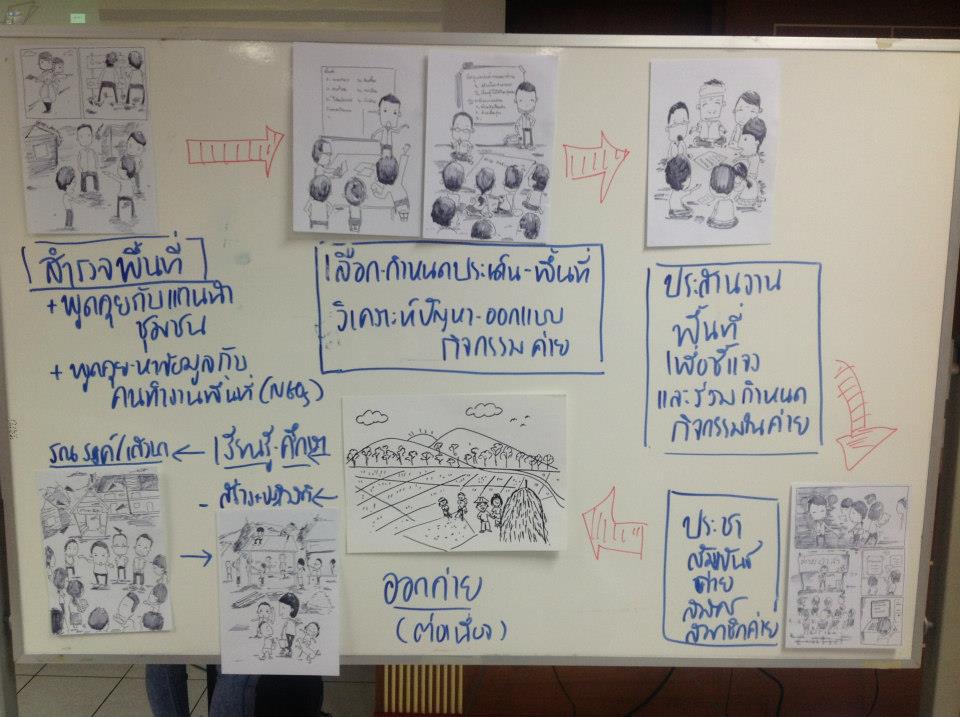 สำรวจพื้นที่
+ พูดคุยกับแกนนำ
ชุมชน
+ พูดคุย-หาข้อมูลกับ
คนทำงานพื้นที่ (NGOs)
เลือก-กำหนดประเด็น-พื้นที่
วิเคราะห์ปัญหา-ออกแบบ
กิจกรรมค่าย
ประสานงาน
พื้นที่
เพื่อชี้แจง
และร่วมกำหนด
กิจกรรมในค่าย
ประชา
สัมพันธ์
ค่าย
สมัคร
สมาชิกค่าย
ออกค่าย
(ต่อเนื่อง)
เรียนรู้-ศึกษา
รณรงค์/